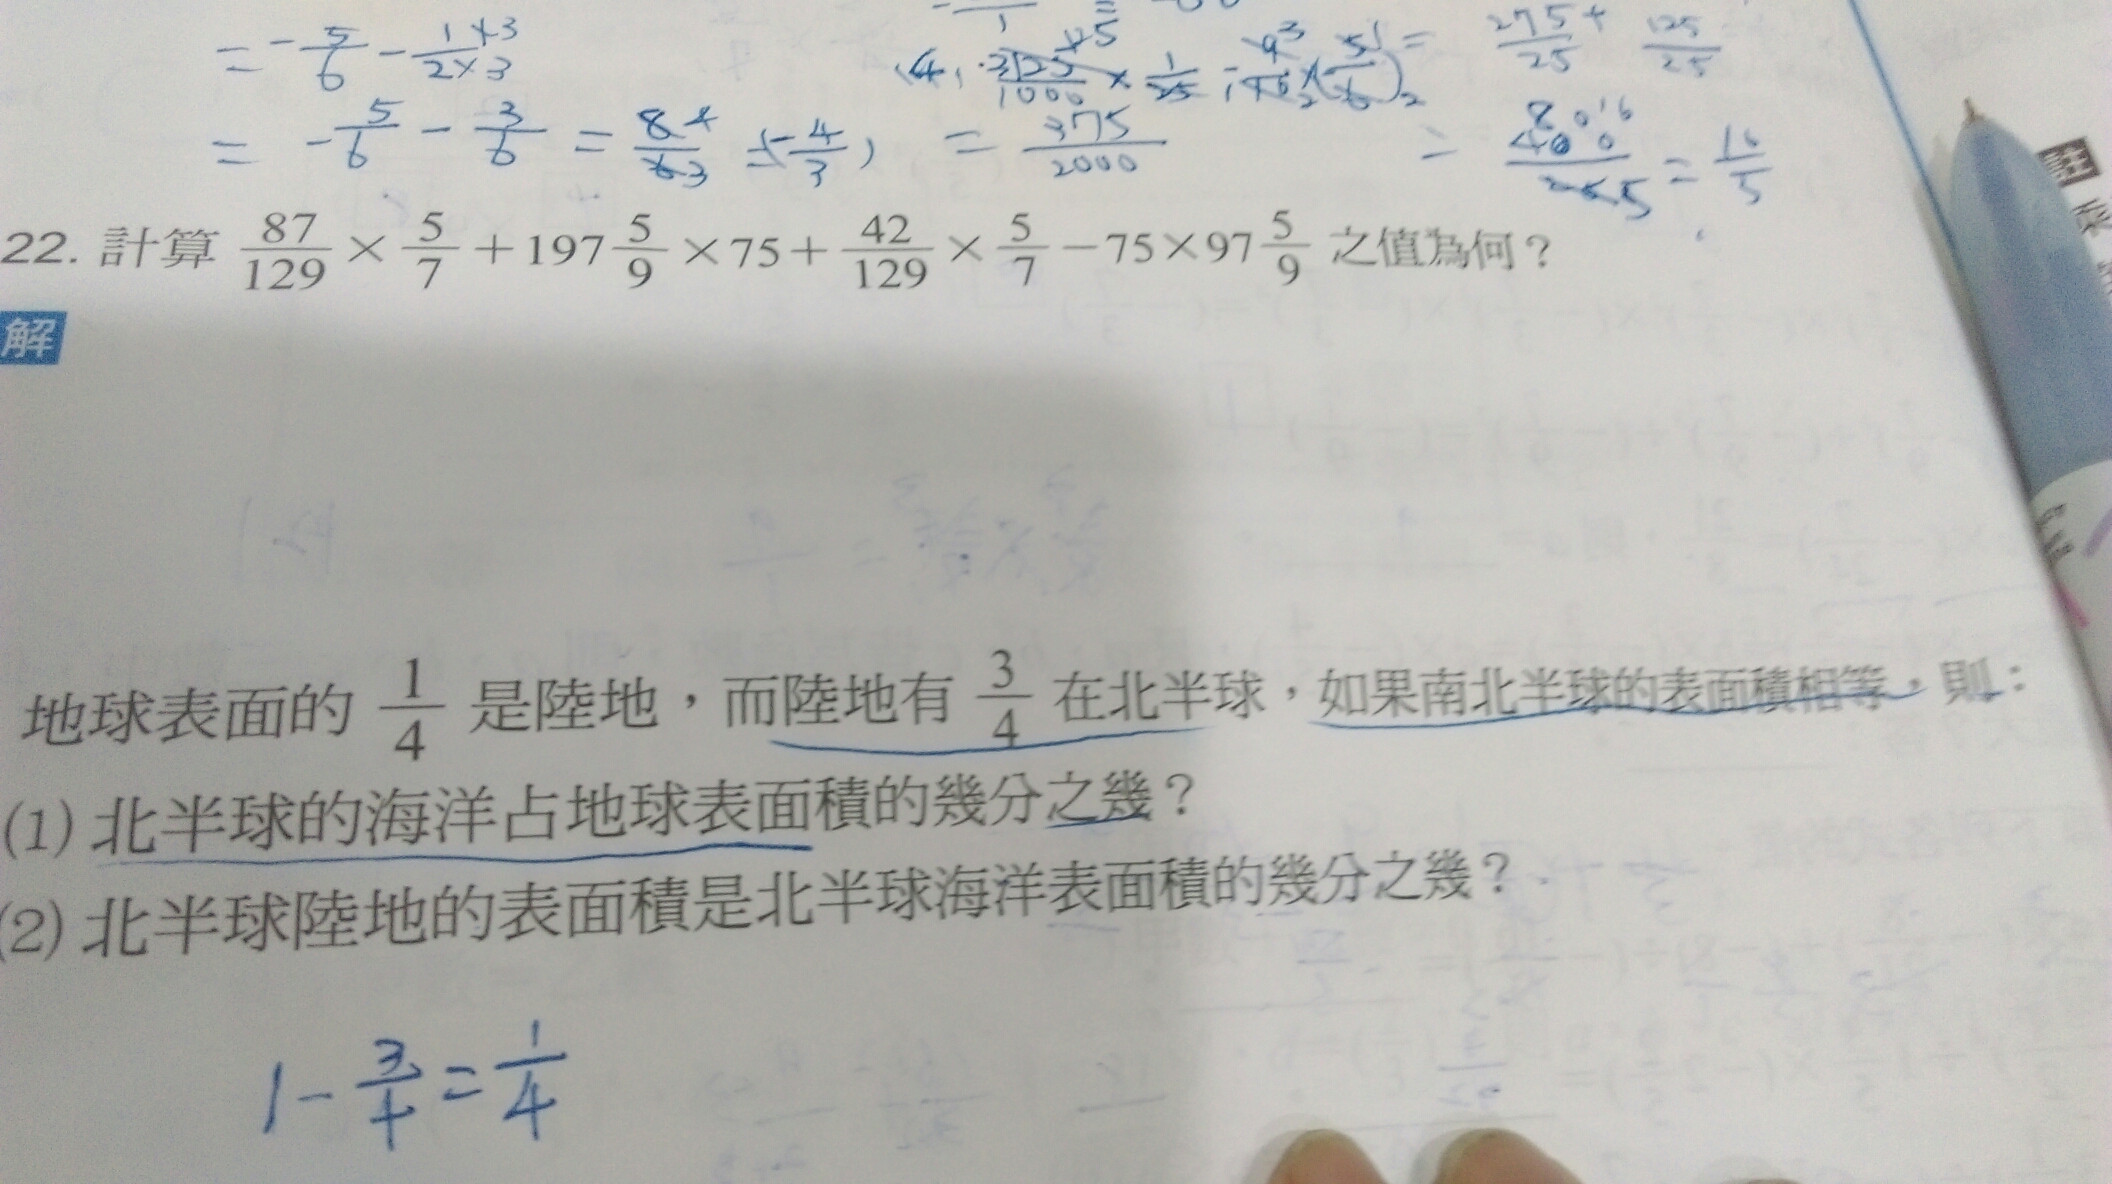 = -5/6 - 1×3/2×3
= -5/6 - 3/6 = 8 4/6 3 = -4/3
= 375/2000
275/25 + 125/25
= 16/5
22. 計算 87/129 × 5/7 + 197 5/9 × 75 + 42/129 × 5/7 - 75 × 97 5/9 之值為何？
解
地球表面的 1/4 是陸地，而陸地有 3/4 在北半球，如果南北半球的表面積相等，則：
(1) 北半球的海洋占地球表面積的幾分之幾？
(2) 北半球陸地的表面積是北半球海洋表面積的幾分之幾？
1 - 3/4 = 1/4